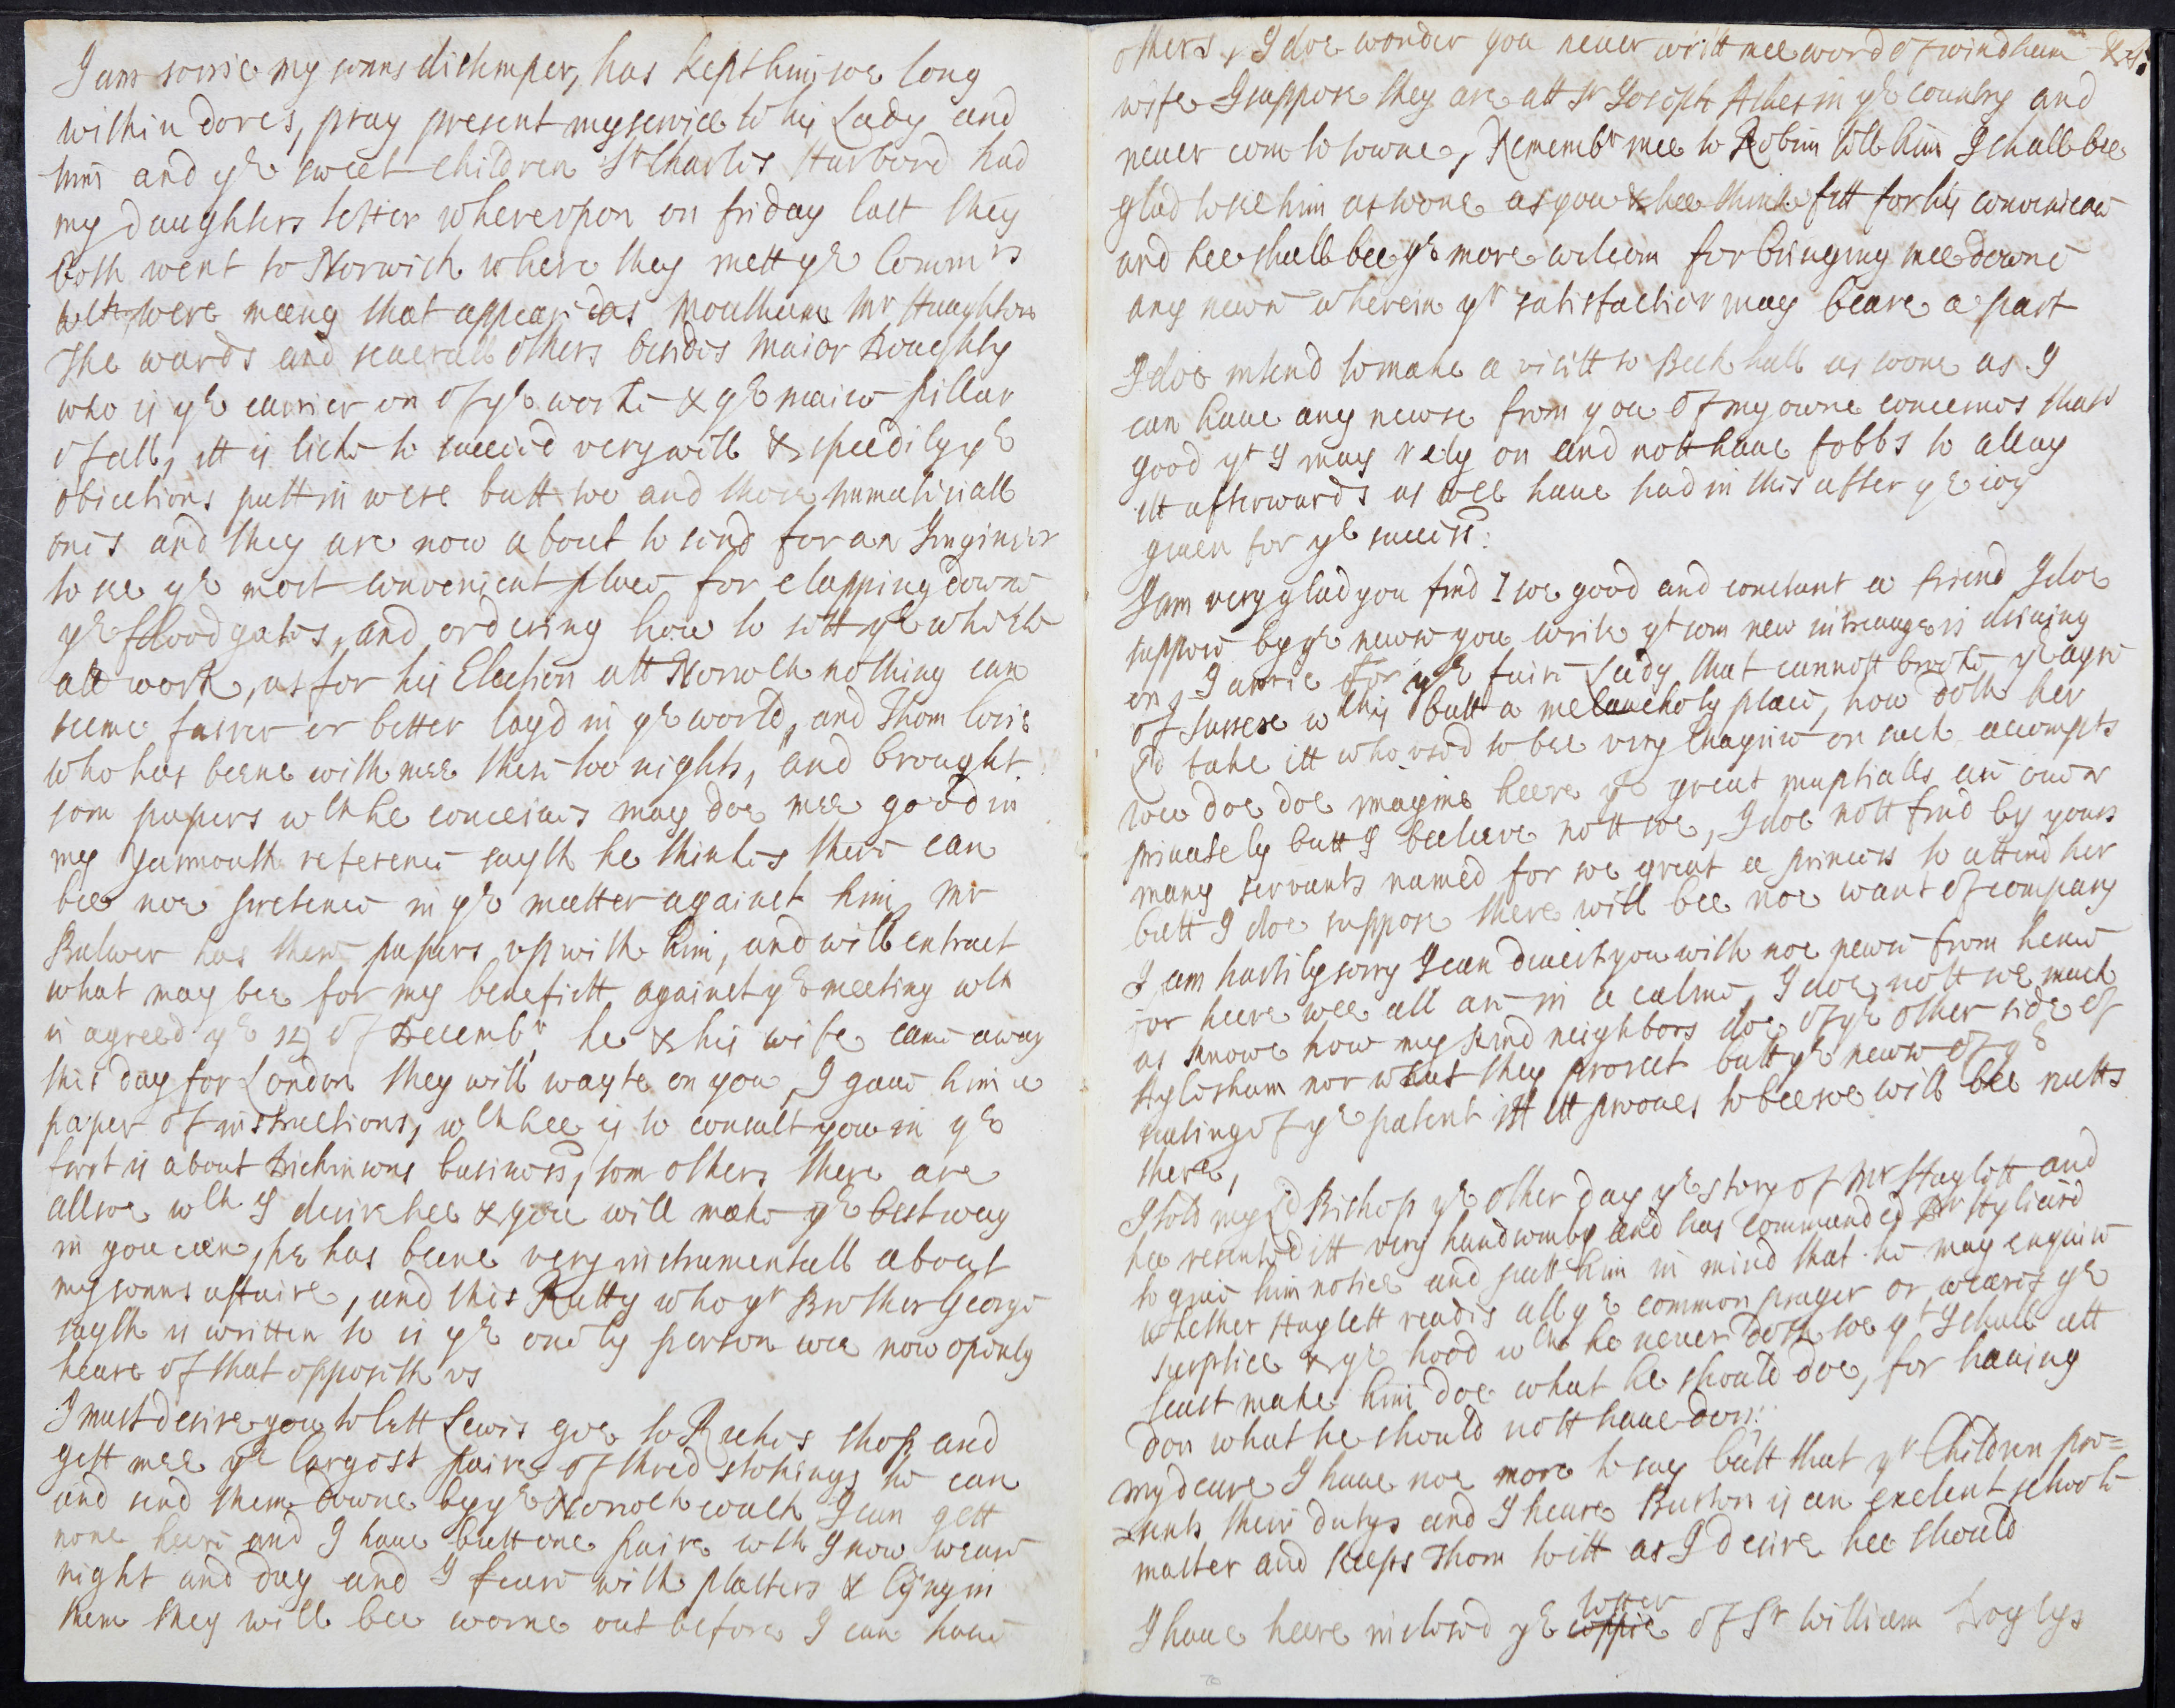 I am sorrie my sonns distemper, has kept him soe long
within dores, pray present my service to his Lady and
him and ye sweet children Sr Charles Harbord had
my daughters letter wherevpon on friday last they
both went to Norwich where they mett ye Commrs
wch were maeny that appeared as Moulham Mr Haughton
The wards and seuerall others besides Maior Doughty
who is ye carrier on of ye worke & ye maine pillar
of all, itt is like to succeed very well & speedily ye
obiections putt in were butt two and those immatiriall
ones and they are now about to send for an Inginier
to see ye most convenient place for clapping downe
ye floodgates, and ordering how to sett ye whole
att work, as for his Election att Norwch nothing can
seeme fairer or better layd in ye world, and Thom Corie
who has beene with mee these too nights, and brought
som papers wch he conceiues may doe mee good in
my Yarmouth reference sayth he thinkes there can
bee noe pretence in ye matter against him, Mr
Bulwer has these papers vp with him, and will extract
what may bee for my benefitt against ye meeting wch
is agreed ye 12 of Decembr, he & his wife came away
this day for London they will wayte on you, I gaue him a
paper of instructions, wch hee is to consult you in ye
first is about Dickinsons business, som others there are
allsoe wch I desire hee & you will make ye best way
in you can, he has beene very instrumentall about
my sonns affaire, and this Rutty who yr Brother George
sayth is written to is ye onely person wee now openly
heare of that opposeth vs
I must desire you to lett Lewis goe to Ruches shop and
gett mee ye largest paire of thred stokings he can
and send them downe by ye Norwch coach I can gett
none heere and I haue butt one paire wch I now weare
night and day and I feare with plasters & lying in
them they will bee worne out before I can haue
others, I doe wonder you neuer writt mee word of windham & his
wife I suppose they are att Sr Joseph Ashes in ye country and
neuer com to towne, Remembr mee to Robin tell him I shall bee
glad to see him as soone as you & hee think fitt for his convenience
and hee shall bee ye more wellcom for bringing mee downe
any newse wherein yr satisfaction may beare a part
I doe intend to make a visitt to Beck hall as soone as I
can haue any newse from you of my owne concernes thats
good yt I may rely on and nott haue sobbs to allay
itt afterwards as wee haue had in this after ye ioy
giuen for ye success:
I am very glad you find I soe good and constant a friend I doe
suppose by ye newse you write yt som new intreauge is driving
on, I am sorrie for ye faire Lady that cannott brooke ye ayre
of Sussex wch is butt a melancholy place, how doth her
Ld take itt who vsed to bee very chagrine on such accompts
wee doe doe imagine heere ye great nuptialls are over
priuately butt I beeleeve nott soe, I doe nott find by yours
many servants named for soe great a princess to attend her
butt I doe suppose there will bee noe want of company
I am hartily sorry I can divert you with noe newse from hence
for heere wee all are in a calme, I doe nott soe much
as knowe how my kind neighbors doe of ye other side of
Aylesham nor what they proiect butt ye newse of ye
sealing of ye patent iff itt proues to bee soe will bee nutts
there,
I told my Ld Bishop ye other day ye story of Mr Haylett and
hee resented itt very handsomly and has commanded Dr Hyliard
to giue him notice and putt him in mind that he may enquire
whether Haylett reades all ye common prayer or weares ye
surplice & ye hood wch he neuer doth soe yt I shall att
least make him doe what he should doe, for hauing
don what he should nott haue don:
My deare I haue noe more to say butt that yr Children pre=
=sents their dutys and I heare Burton is an exelent schoole
master and keeps Thom to itt as I desire hee should
I haue heere inclosed ye letter of Sr William Doylys